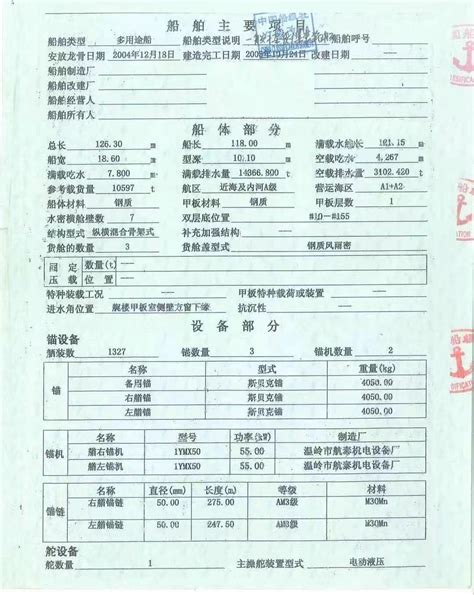 船舶主要项目
船舶类型 多用途船 船舶类型说明 船舶呼号
安放龙骨日期 2004年12月18日 建造完工日期 2005年10月24日 改建日期
船舶制造厂
船舶改建厂
船舶经营人
船舶所有人
船体部分
总长 126.30 m 船长 118.00 m 满载水线长 121.15 m
船宽 18.60 m 型深 10.10 m 空载吃水 4.267 m
满载吃水 7.800 m 满载排水量 14366.800 t 空载排水量 3102.420 t
参考载货量 10597 t 航区 近海及内河A级 营运海区 A1+A2
船体材料 钢质 甲板材料 钢质 甲板层数 1
水密横舱壁数 7 双层底位置 #10-#155
结构型式 纵横混合骨架式 补充加强结构 —
货舱的数量 3 货舱盖型式 钢质风雨密
固定 数量(t) —
压载 位置 —
特种装载工况 — 甲板特种载荷或装置 —
进水角位置 艉楼甲板室侧壁方窗下缘 抗沉性 —
设备部分
锚设备
舾装数 1327 锚数量 3 锚机数量 2
锚 名称 型式 重量(kg)
备用锚 斯贝克锚 4050.00
右艏锚 斯贝克锚 4050.00
左艏锚 斯贝克锚 4050.00
锚机 名称 型号 功率(kW) 制造厂
艏右锚机 1YMX50 55.00 温岭市航泰机电设备厂
艏左锚机 1YMX50 55.00 温岭市航泰机电设备厂
锚链 名称 直径(mm) 长度(m) 等级 材料
右艏锚链 50.00 275.00 AM3级 M30Mn
左艏锚链 50.00 247.50 AM3级 M30Mn
舵设备
舵数量 1 主操舵装置型式 电动液压